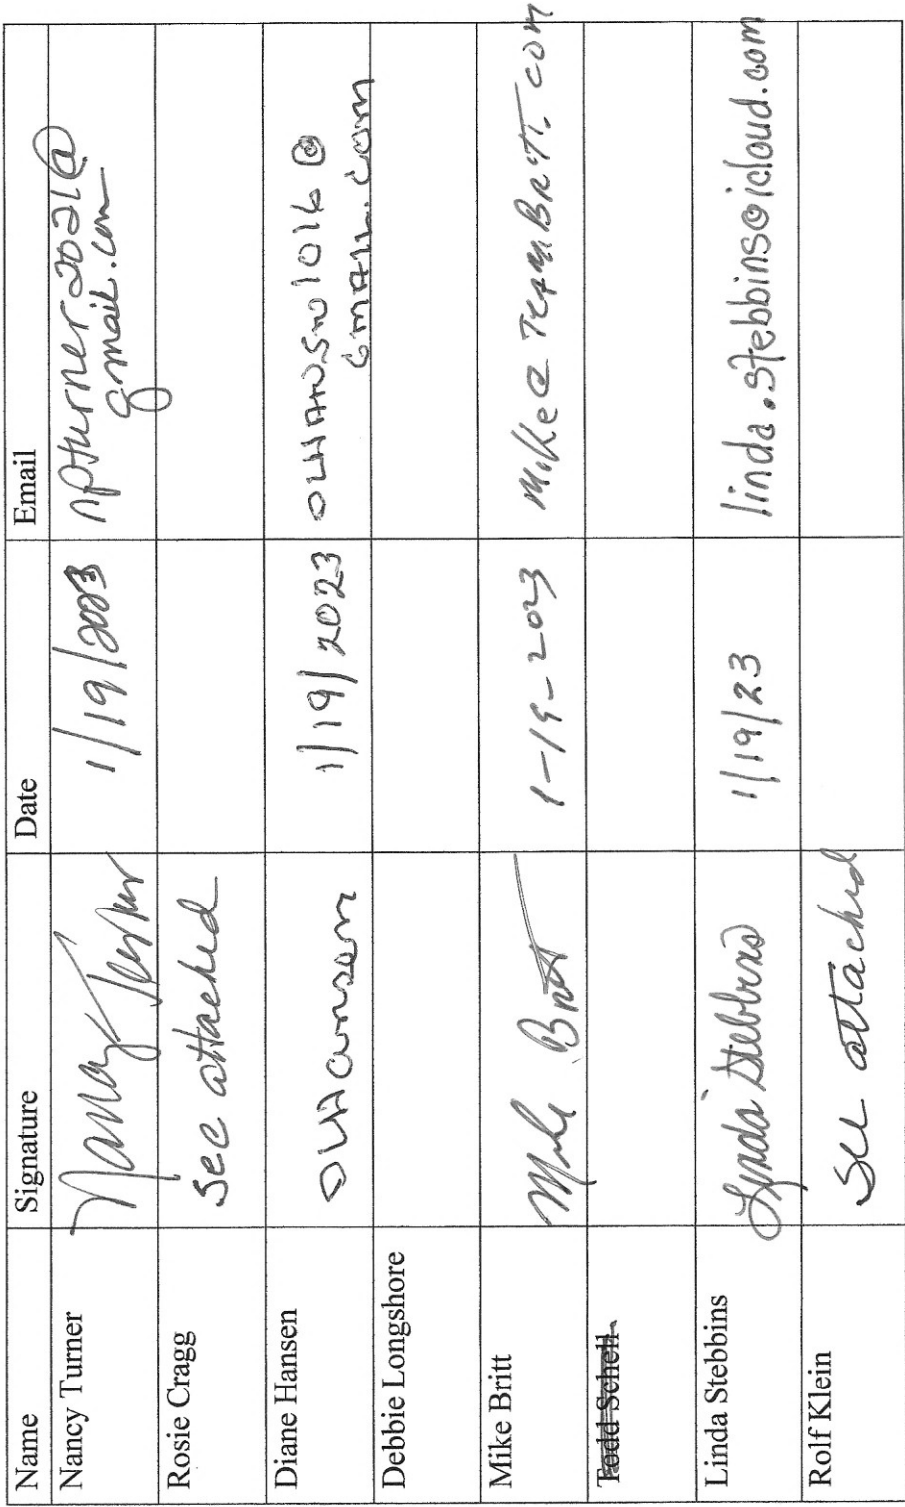 Name Signature Date Email
Nancy Turner Nancy Turner 1/19/2023 npturner2021@
gmail.com
Rosie Cragg See attached
Diane Hansen DLHansen 1/19/2023 DLHANSN1016@
GMAIL.COM
Debbie Longshore
Mike Britt Mike Britt 1-19-2023 Mike@TEAMBRITT.COM
Todd Schell
Linda Stebbins Lynda Stebbins 1/19/23 linda.stebbins@icloud.com
Rolf Klein See attached